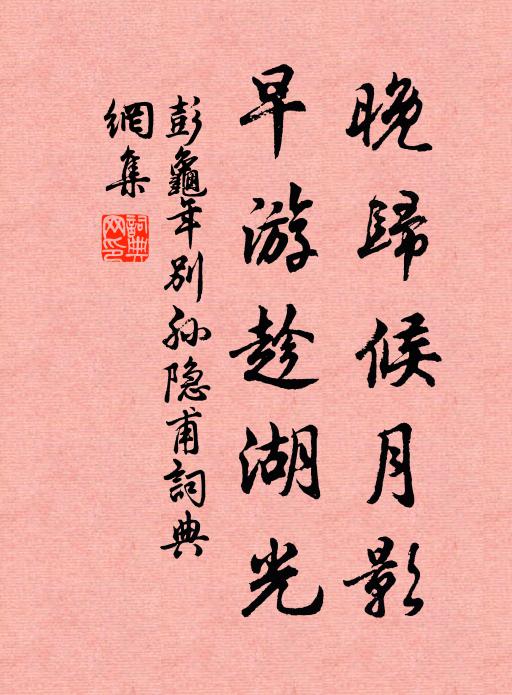 晚歸候月影
早游趁湖光
彭龜年別孫隐甫詞典
網集
詞典
网印